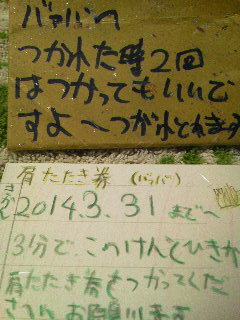 バァバへ
つかれた時2回
はつかってもいいで
すよ〜つかれとれます
肩たたき券 (バァバ)
きげん
2014.3.31 までへ
3分で、このけんとひきか
肩たたき券をつかってくだ
さい。お願いします